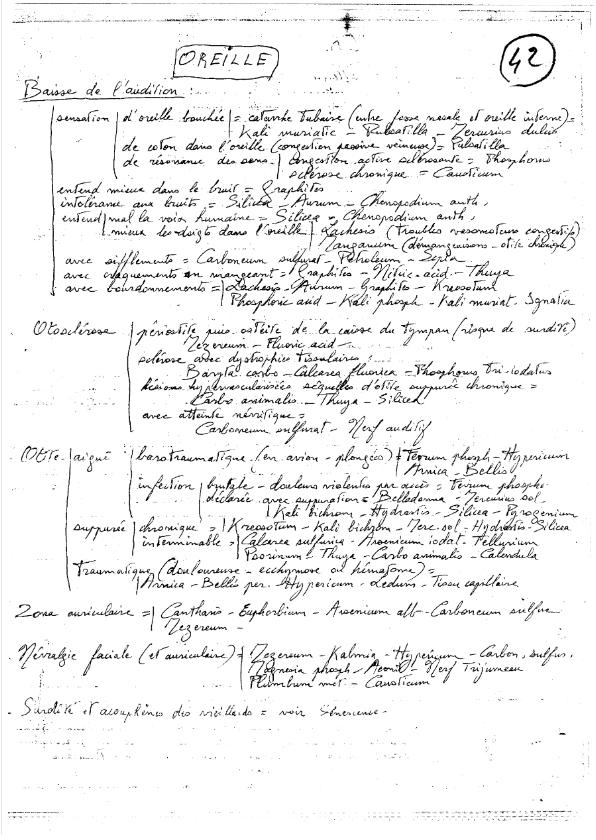 OREILLE
42
Baisse de l'audition :
sensation d'oreille bouchée = catarrhe tubaire (entre fosse nasale et oreille interne) =
Kali muriatic - Pulsatilla - Mercurius dulcis
de coton dans l'oreille (congestion passive veineuse) = Pulsatilla
de résonance des sons - congestion active sclérosante = Phosphorus
sclérose chronique = Causticum
entend mieux dans le bruit = Graphites
intolérance aux bruits = Silicea - Aurum - Chenopodium anth.
entend mal la voix humaine = Silicea - Chenopodium anth.
mieux les doigts dans l'oreille Lachesis (troubles vasomoteurs congestifs)
Manganum (démangeaisons - otite chronique)
avec sifflements = Carboneum sulfurat - Petroleum - Sepia
avec craquements en mangeant = Graphites - Nitric-acid - Thuya
avec bourdonnements = Lachesis - Aurum - Graphites - Kreosotum
Phosphoric acid - Kali phosph - Kali muriat. Ignatia
Otosclérose périostite puis ostéite de la caisse du tympan (risque de surdité)
Mezereum - Fluoric acid -
sclérose avec dystrophies tissulaires :
Baryta carbo - Calcarea fluorica - Phosphorus tri-iodatus
lésions hypervascularisées séquelles d'otite suppurée chronique =
Carbo animalis - Thuya - Silicea
avec atteinte névritique =
Carboneum sulfurat - Nerf auditif
Otite aiguë barotraumatique (en avion - plongées) = Ferrum phosph - Hypericum
Arnica - Bellis
infection brutale - douleurs violentes par accès = Ferrum phosph.
déclarée avec suppuration = Belladonna - Mercurius sol.
Kali bichrom - Hydrastis - Silicea - Pyrogenium
suppurée chronique = Kreosotum - Kali bichrom - Merc. sol - Hydrastis - Silicea
interminable = Calcarea sulfurica - Arsenicum iodat - Tellurium
Psorinum - Thuya - Carbo animalis - Calendula
Traumatique (douloureuse - ecchymose ou hématome) =
Arnica - Bellis per. Hypericum - Ledum - Tissu capillaire
Zona auriculaire = Cantharis - Euphorbium - Arsenicum alb - Carboneum sulfur
Mezereum -
Névralgie faciale (et auriculaire) = Mezereum - Kalmia - Hypericum - Carbon. sulfur.
Magnesia phosph - Aconit - Nerf Trijumeau
Plumbum met - Causticum
. Surdité et acouphènes des vieillards = voir Sénescence -